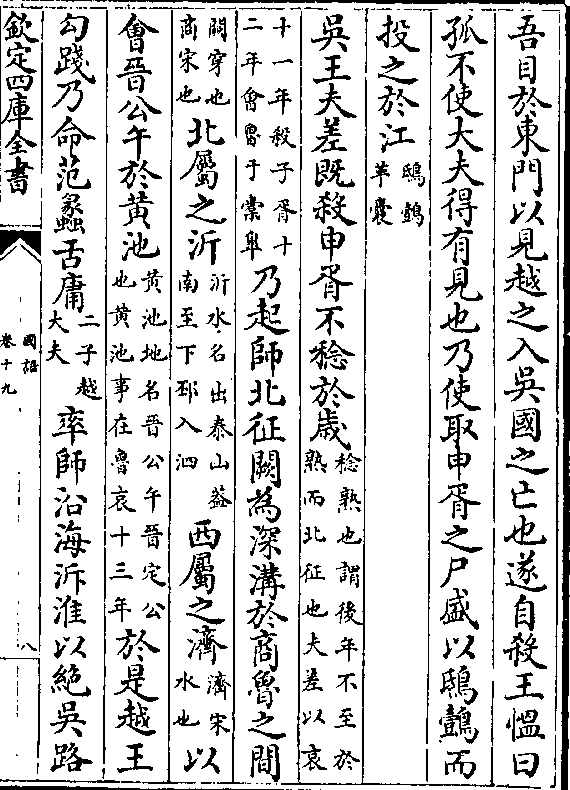 吾目於東門以見越之入吳國之亡也遂自殺王愠曰
孤不使大夫得有見也乃使取申胥之尸盛以鴟而
投之於江鴟革囊
吳王夫差既殺申胥不稔於歲稔熟也謂後年不至於熟而北征也夫差以哀
十一年殺子胥十二年會魯于橐臯乃起師北征闕為深溝於商魯之間
闕穿也商宋也北屬之沂沂水名出泰山蓋南至下邳入泗西屬之濟濟宋水也以
會晉公午於黄池黄池地名晉公午晉定公也黄池事在魯哀十三年於是越王
勾踐乃命范蠡舌庸二子越大夫率師沿海泝淮以絶吳路
欽定四庫全書
國語
卷十九
八